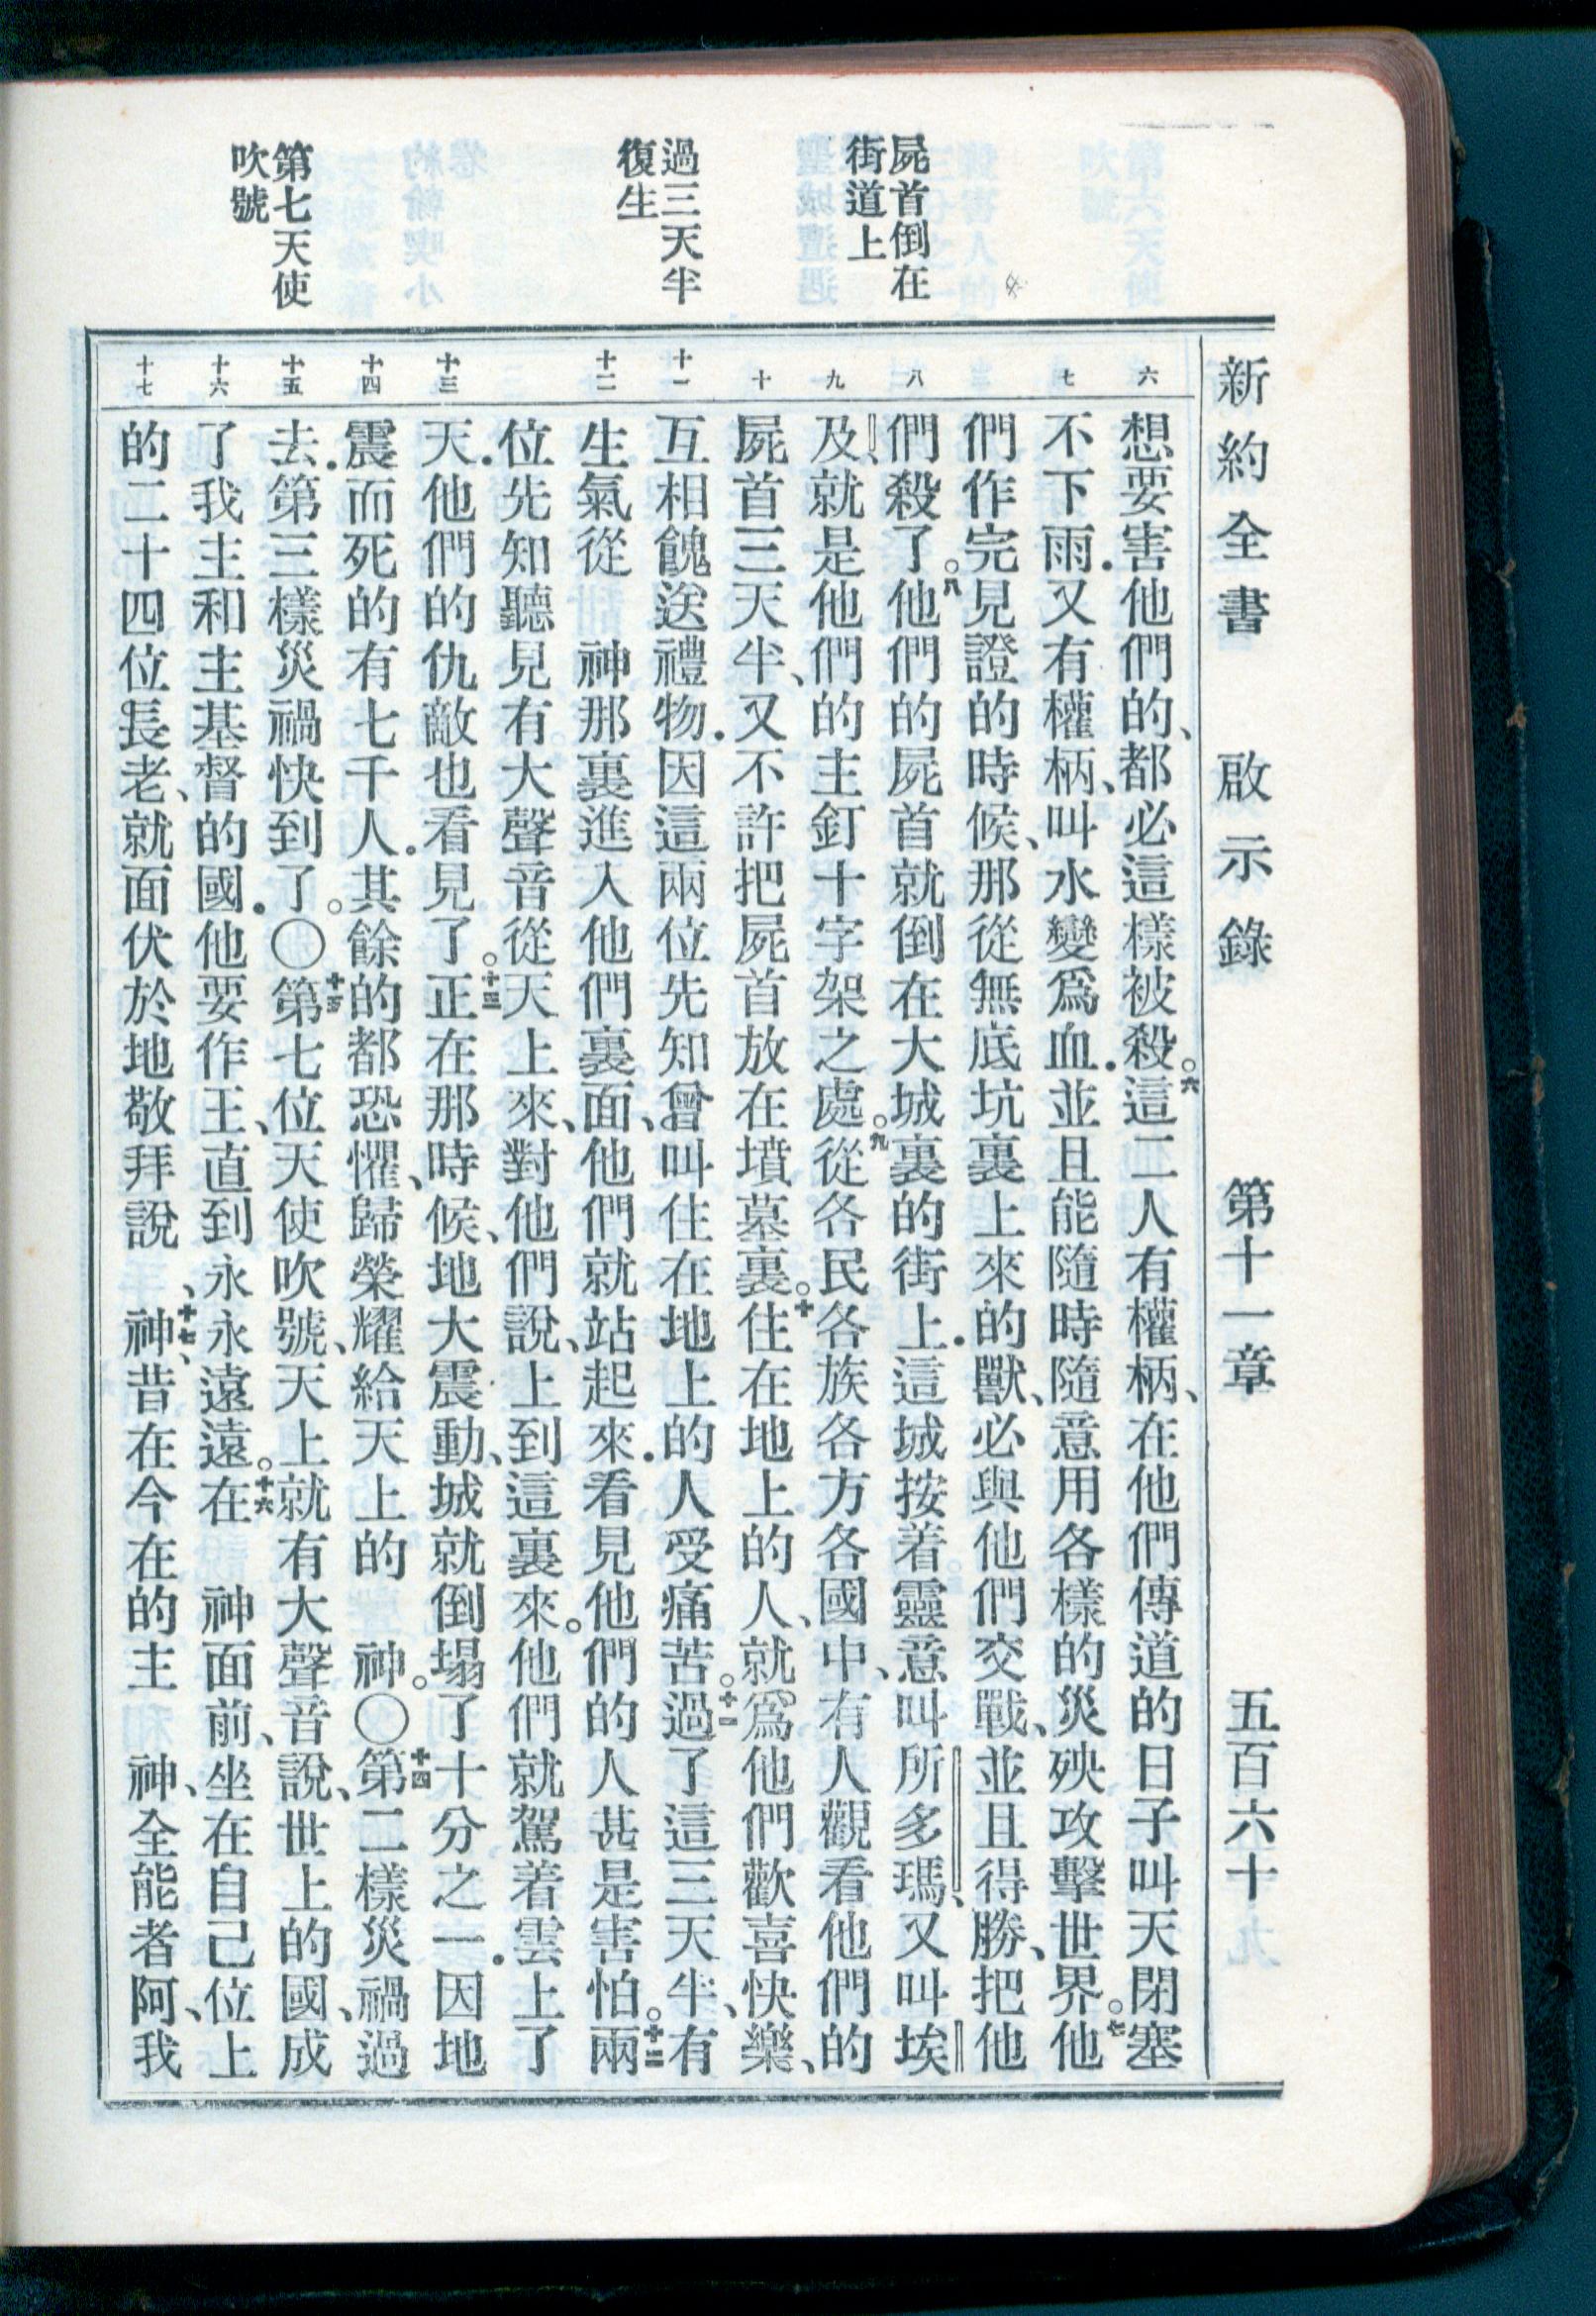 新約全書 啟示錄 第十一章 五百六十
屍首倒在
街道上
過三天半
復生
第七天使
吹號
六 七 八 九 十 十一 十二 十三 十四 十五 十六 十七
想要害他們的、都必這樣被殺。六這二人有權柄、在他們傳道的日子叫天閉塞
不下雨．又有權柄、叫水變爲血．並且能隨時隨意用各樣的災殃攻擊世界。七他
們作完見證的時候、那從無底坑裏上來的獸、必與他們交戰、並且得勝、把他
們殺了。八他們的屍首就倒在大城裏的街上．這城按着靈意叫所多瑪、又叫埃
及、就是他們的主釘十字架之處。九從各民各族各方各國中、有人觀看他們的
屍首三天半、又不許把屍首放在墳墓裏。十住在地上的人、就爲他們歡喜快樂、
互相餽送禮物．因這兩位先知曾叫住在地上的人受痛苦。十一過了這三天半、有
生氣從 神那裏進入他們裏面、他們就站起來．看見他們的人甚是害怕。十二兩
位先知聽見有大聲音從天上來、對他們說、上到這裏來。他們就駕着雲上了
天．他們的仇敵也看見了。十三正在那時候、地大震動、城就倒塌了十分之一．因地
震而死的有七千人．其餘的都恐懼、歸榮耀給天上的 神。〇十四第二樣災禍過
去．第三樣災禍快到了。〇十五第七位天使吹號、天上就有大聲音說、世上的國、成
了我主和主基督的國．他要作王、直到永永遠遠。十六在 神面前、坐在自己位上
的二十四位長老、就面伏於地敬拜說、十七 神、昔在今在的主 神、全能者阿、我